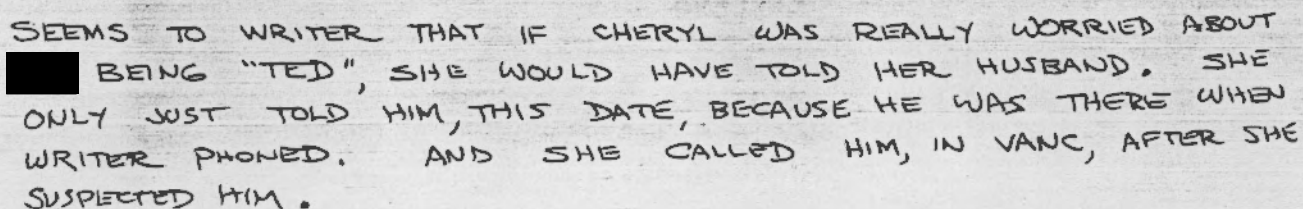 SEEMS TO WRITER THAT IF CHERYL WAS REALLY WORRIED ABOUT
BEING "TED", SHE WOULD HAVE TOLD HER HUSBAND. SHE
ONLY JUST TOLD HIM, THIS DATE, BECAUSE HE WAS THERE WHEN
WRITER PHONED. AND SHE CALLED HIM, IN VANC, AFTER SHE
SUSPECTED HIM.